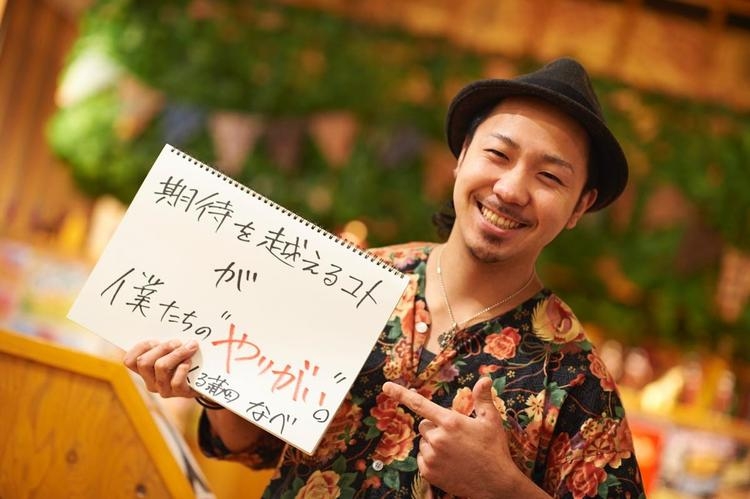 期待を越えるコト
が
僕たちの"やりがい"
る蒲田 なべの